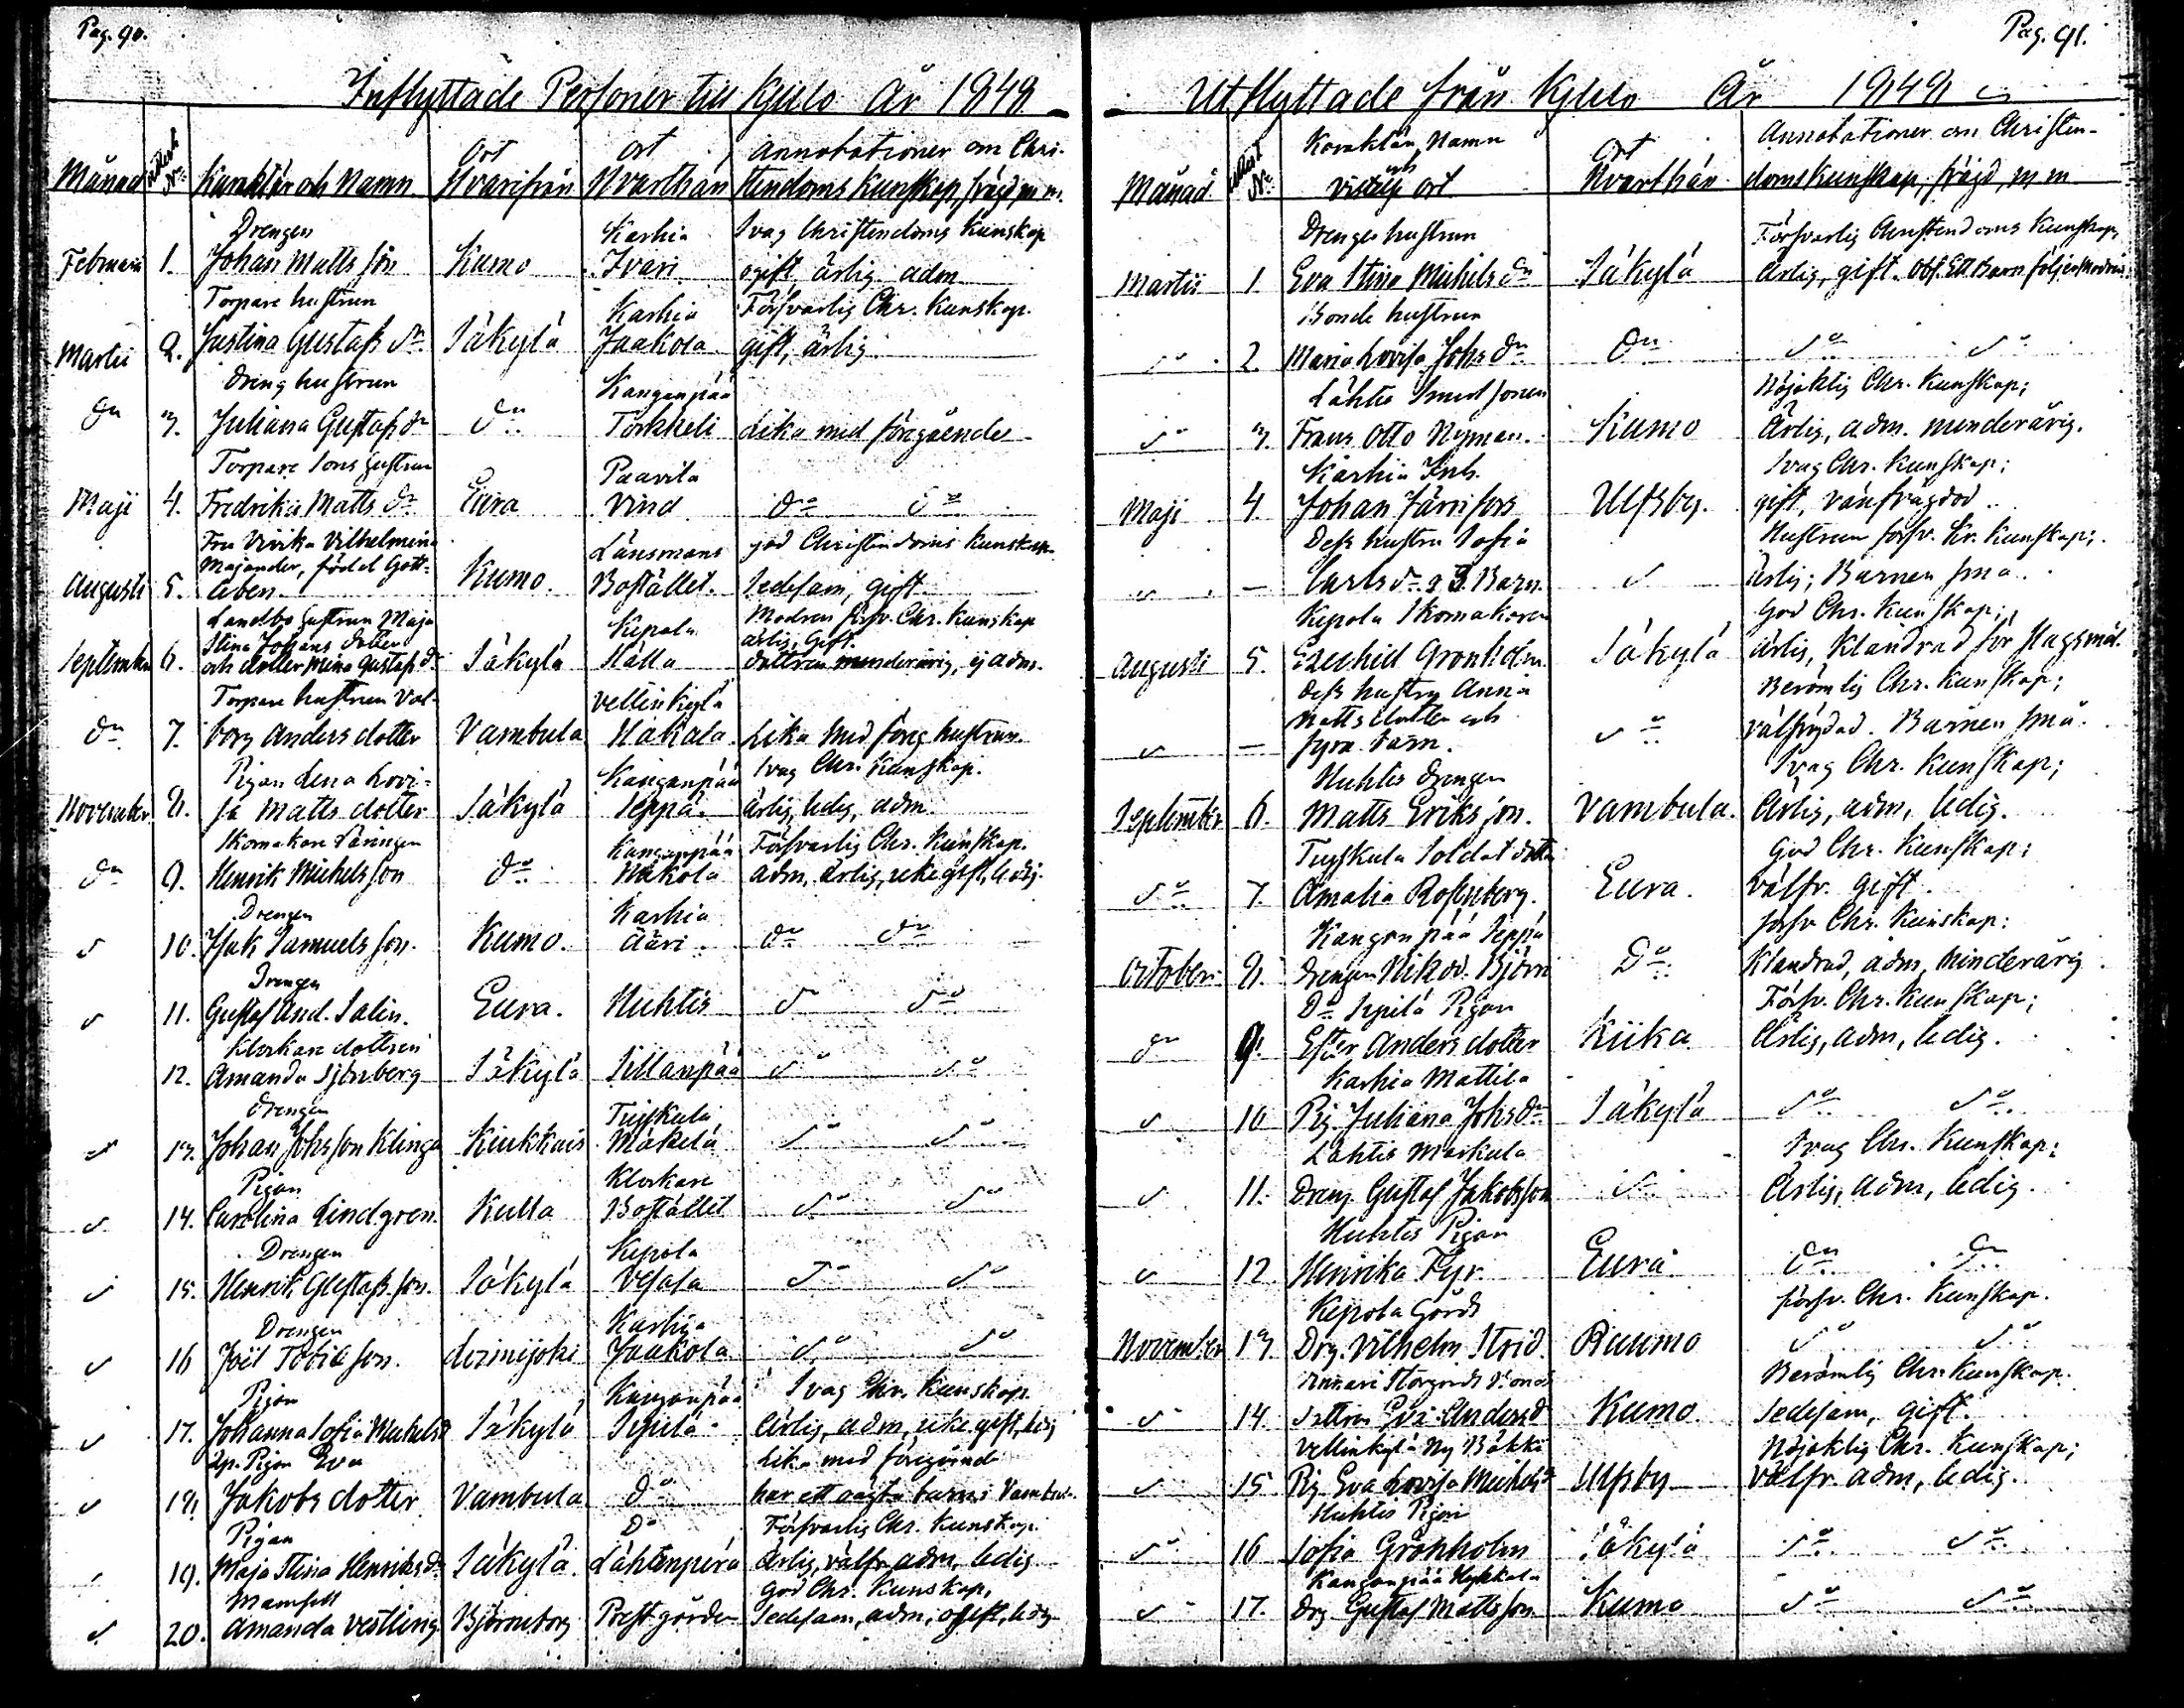 Pag. 90.
Inflyttade Personer till Kjulo År 1848
Månad Attest No Karaktär och Namn Ort Hvarifrån Ort Hvarthän Annotationer om Christendoms Kunskap, frägd m. m.
Februarii 1. Drengen Johan Matts son Kumo Karhia Ivari Svag Christendoms Kunskap ogift, ärlig adm
Martii 2. Torpare hustrun Justina Gustafs dr Säkylä Karhia Jaakola Försvarlig Chr. Kunskap. gift, ärlig
do 3. Dreng hustrun Juliana Gustafs dr do Kanganpää Törkkeli Lika med föregående
Maji 4. Torpare Sons hustrun Fredrika Matts dr Eura Paavila Vind do do
Augusti 5. Fru Vivika Vilhelmina Majander, född Gottleben Kumo. Länsmans Bostället. god Christendoms Kunskap Sedesam, gift
September 6. Landbo hustrun Maja Stina Johans dotter och dotter Mina Gustafs dr Säkylä Kepola Hälla Modren försv. Chr. Kunskap ärlig, Gift. dottren minderårig, ej adm.
do 7. Torpare hustrun Valborg Anders dotter Vambula Vellinkylä Hakala Lika med förig hustrun.
November 8. Pigan Lena Lovisa Matts dotter Säkylä Kanganpää Seppä. Svag Chr. Kunskap. ärlig, ledig, adm.
do 9. Skomakare Lärlingen Henrik Michels son do Kanganpää Försvarlig Chr. Kunskap. adm, ärlig, icke gift, ledig
d 10. Drengen Isak Samuels son. Kumo. Karhia Ääri do do
d 11. Drengen Gustaf And. Salin. Eura. Huhtis do do
12. Klockare dottren Amanda Sjönberg Säkylä Sillanpää do do
d 13. Drengen Johan Johs son Klinga Kiukkais Tuiskula Mäkelä do do
d 14. Pigan Carolina Lindgren. Kulla Klockare Bostället do do
d 15. Drengen Henrik Gustafs son. Säkylä Kepola Vesala do do
d 16 Drengen Joel Tobiae son. Loimijoki Karhia Jaakola do do
d 17. Pigan Johanna Sofia Michelsd Säkylä Kanganpää Sepilä Svag Chr. Kunskap Ärlig, adm, icke gift, ledig
d 18 Pigan Eva Jakobs dotter Vambula do Lika med föregående har ett oägta barn i Vambula
19. Pigan Maja Stina Henriks dr Säkylä. Do Lähtenperä Försvarlig Chr. Kunskap. Ärlig, välfr. adm, ledig
d 20. Mamsell Amanda Vestling. Björneborg Prestgården God Chr. Kunskap, Sedesam, adm, ogift, ledig
Pag. 91.
Utflyttade från Kjulo År 1848
Månad Attest No Karaktär, Namn och vistelse ort Ort Hvarthän Annotationer om Christendoms Kunskap, frägd, m m
Martii 1. Drenge hustrun Eva Stina Michels dr Säkylä Försvarlig Christendoms Kunskap, Ärlig, gift. Obs. Ett Barn följer Modren.
do 2. Bonde hustrun Maria Lovisa Johs dr do do do
do 3. Lähtis Smed sonen Frans Otto Nyman. Kumo Nöjaktig Chr. Kunskap; Ärlig, adm. minderårig.
Maji 4. Karhia Inh. Johan Järnfors Ulfsby. Svag Chr. Kunskap; gift, vanfrägdad
Dess hustru Sofia Carls dr o 3 Barn. d Hustrun försv. Kr. Kunskap; Ärlig; Barnen små
Augusti 5. Kepola Skomakaren Ezechiel Grönholm Säkylä God Chr. Kunskap; ärlig, Klandrad för Slagsmål.
dess hustru Anna Matts dotter och fyra barn. do Berömlig Chr. Kunskap; välfrägdad. Barnen små.
September 6. Huhtis drengen Matts Eriks son. Vambula. Svag Chr. Kunskap; Ärlig, adm, ledig.
do 7. Tuiskula Soldat dotter Amalia Rosenberg. Eura. God Chr. Kunskap; välfr. gift.
October. 8. Kanganpää Seppä drengen Nikod. Björn Do försv Chr. Kunskap: Klandrad, adm, minderårig
do 9. Do Sepilä Pigan Ester Anders dotter Kiika Försv. Chr. Kunskap; Ärlig, adm, ledig.
d 10 Karhia Mattila Pig. Juliana Johs dr Säkylä do do
d 11. Lähtis Markula Dreng Gustaf Jakobsson d Svag Chr. Kunskap: Ärlig, adm, ledig.
d 12 Huhtis Pigan Henrika Fyr. Eura do do
November 13 Kepola Gårds Drg. Vilhelm Strid. Raumo försv. Chr. Kunskap. do do
d 14. Storgårds dottren Anders d Kumo. Berömlig Chr. Kunskap. Sedesam, gift.
d 15 Vellinkylä Ny Bäkki Pig Eva Lovisa Michelsd Ulfsby Nöjaktig Chr. Kunskap; välfr. adm, ledig.
do 16 Huhtis Pigan Sofia Grönholm Säkylä do do
d 17. Kanganpää Hykkala Drg. Gustaf Mattsson Kumo do do